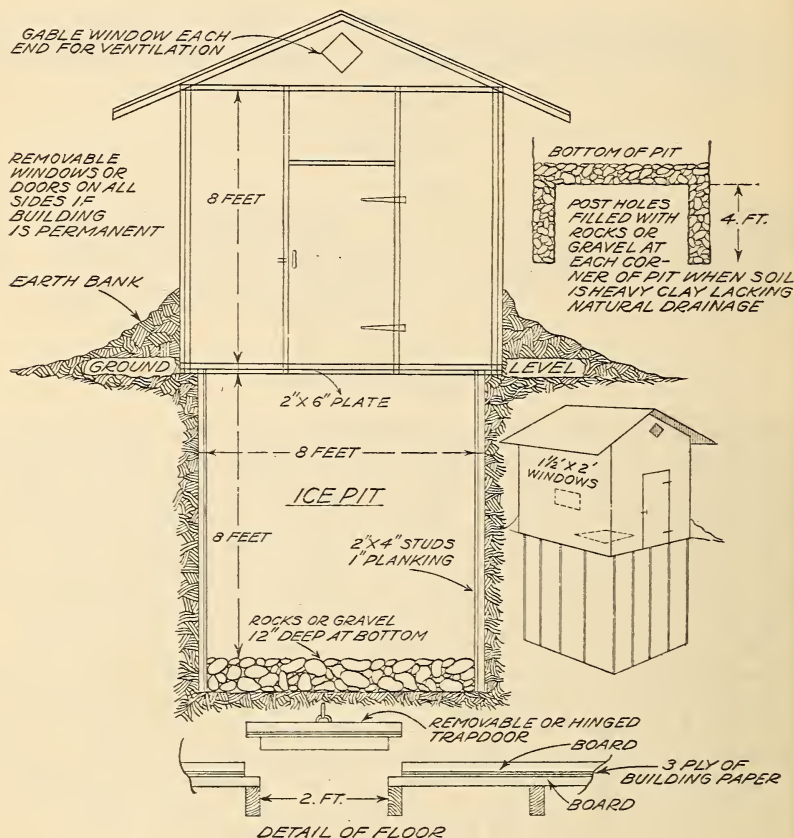 GABLE WINDOW EACH
END FOR VENTILATION
REMOVABLE
WINDOWS OR
DOORS ON ALL
SIDES IF
BUILDING
IS PERMANENT
8 FEET
BOTTOM OF PIT
POST HOLES
FILLED WITH
ROCKS OR
GRAVEL AT
EACH COR-
NER OF PIT WHEN SOIL
IS HEAVY CLAY LACKING
NATURAL DRAINAGE
4. FT.
EARTH BANK
GROUND
LEVEL
2"X 6" PLATE
8 FEET
ICE PIT
8 FEET
2"X4" STUDS
1" PLANKING
ROCKS OR GRAVEL
12" DEEP AT BOTTOM
1½' X 2'
WINDOWS
REMOVABLE OR HINGED
TRAPDOOR
BOARD
3 PLY OF
BUILDING PAPER
BOARD
2. FT.
DETAIL OF FLOOR